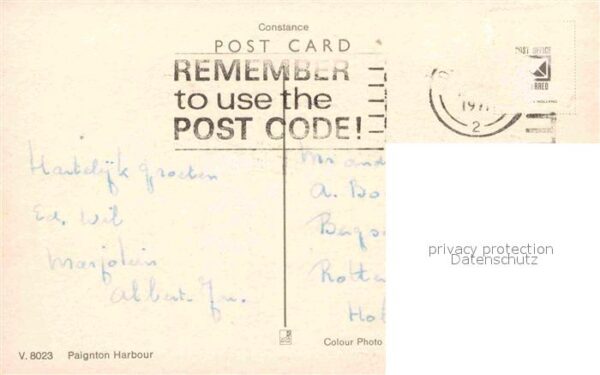 Constance
POST CARD
REMEMBER
to use the
POST CODE!
POST OFFICE
197
2
Hartelijk groeten
Ed. Wil
Marjolein
Albert. Jr.
Mr and
A. Bo
Bergs
Rotte
Hol
privacy protection
Datenschutz
V. 8023 Paignton Harbour
Colour Photo